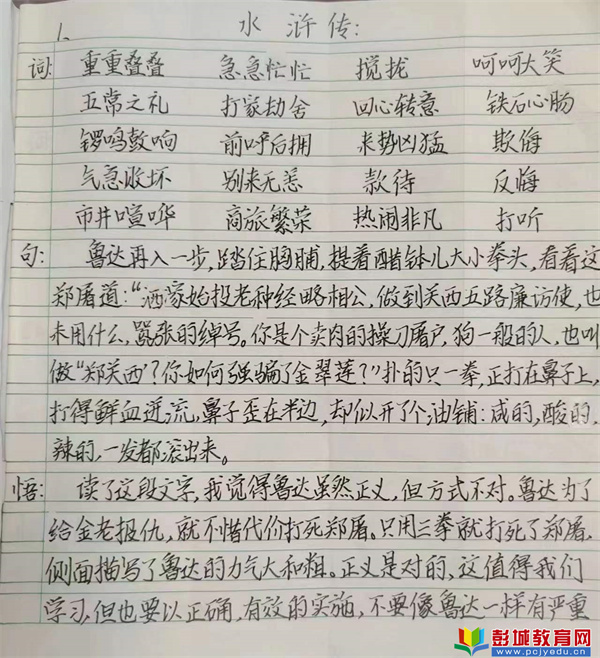 1、 水浒传:
词: 重重叠叠 急急忙忙 搅拢 呵呵大笑
五常之礼 打家劫舍 回心转意 铁石心肠
锣鸣鼓响 前呼后拥 来势凶猛 欺侮
气急败坏 别来无恙 款待 反悔
市井喧哗 商旅繁荣 热闹非凡 打听
句: 鲁达再入一步,踏住胸脯,提着醋钵儿大小拳头,看着这
郑屠道:“洒家始投老种经略相公,做到关西五路廉访使,也
未用什么,嚣张的绰号。你是个卖肉的操刀屠户,狗一般的人,也叫
做“郑关西”?你如何强骗了金翠莲?”扑的只一拳,正打在鼻子上,
打得鲜血迸流,鼻子歪在半边,却似开了个油铺:咸的,酸的,
辣的,一发都滚出来。
悟: 读了这段文字,我觉得鲁达虽然正义,但方式不对。鲁达为了
给金老报仇,就不惜代价打死郑屠。只用三拳就打死了郑屠,
侧面描写了鲁达的力气大和粗。正义是对的,这值得我们
学习,但也要以正确,有效的实施,不要像鲁达一样有严重
彭城教育网
www.pcjyedu.cn